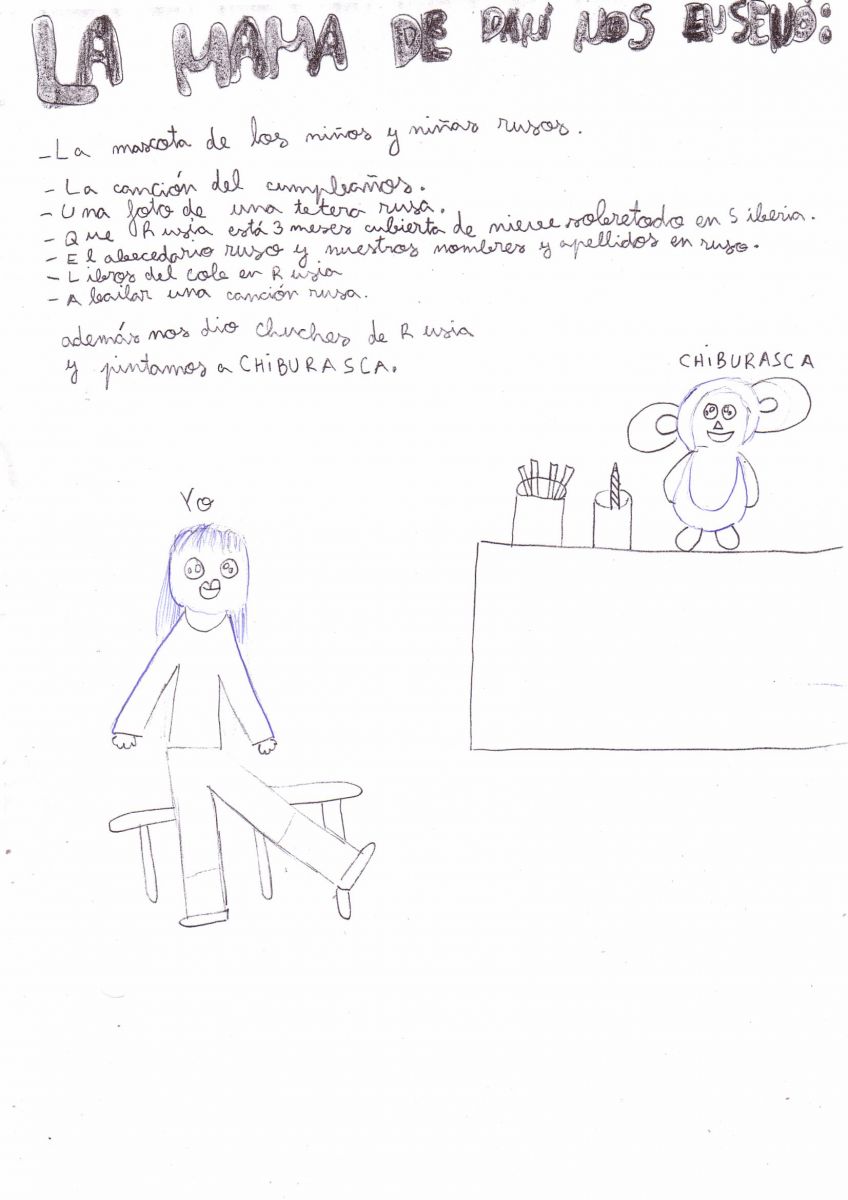 LA MAMA DE DANI NOS ENSEÑÓ:
- La mascota de los niños y niñas rusos.
- La canción del cumpleaños.
- Una foto de una tetera rusa.
- Que Rusia está 3 meses cubierta de nieve sobretodo en Siberia.
- El abecedario ruso y nuestros nombres y apellidos en ruso.
- Libros del cole en Rusia
- A bailar una canción rusa.
además nos dio chuches de Rusia
y pintamos a CHIBURASCA.
CHIBURASCA
Yo